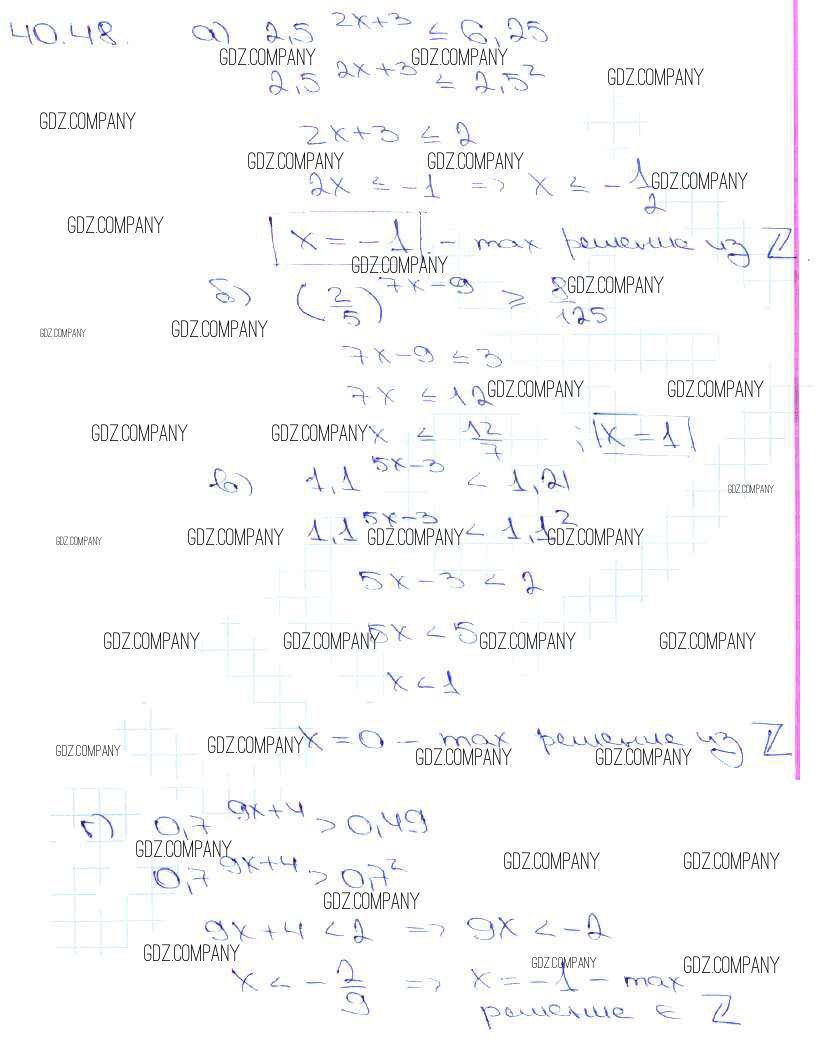 40.48. а) 2,5^(2x+3) ≤ 6,25
GDZ.COMPANY GDZ.COMPANY
2,5^(2x+3) ≤ 2,5² GDZ.COMPANY
GDZ.COMPANY
2x+3 ≤ 2
GDZ.COMPANY GDZ.COMPANY
2x ≤ -1 => x ≤ -1/2 GDZ.COMPANY
GDZ.COMPANY
x = -1 - max решение из ℤ
GDZ.COMPANY
б) (2/5)^(7x-9) ≥ 8/125 GDZ.COMPANY
GDZ.COMPANY GDZ.COMPANY
7x-9 ≤ 3
7x ≤ 12 GDZ.COMPANY GDZ.COMPANY
GDZ.COMPANY GDZ.COMPANY x ≤ 12/7 ; x = 1
в) 1,1^(5x-3) < 1,21 GDZ.COMPANY
GDZ.COMPANY GDZ.COMPANY 1,1^(5x-3) GDZ.COMPANY < 1,1² GDZ.COMPANY
5x-3 < 2
GDZ.COMPANY GDZ.COMPANY 5x < 5 GDZ.COMPANY GDZ.COMPANY
x < 1
GDZ.COMPANY GDZ.COMPANY x = 0 - max решение из ℤ
GDZ.COMPANY GDZ.COMPANY
г) 0,7^(9x+4) > 0,49
GDZ.COMPANY GDZ.COMPANY GDZ.COMPANY
0,7^(9x+4) > 0,7²
GDZ.COMPANY
9x+4 < 2 => 9x < -2
GDZ.COMPANY GDZ.COMPANY GDZ.COMPANY
x < -2/9 => x = -1 - max
решение ∈ ℤ